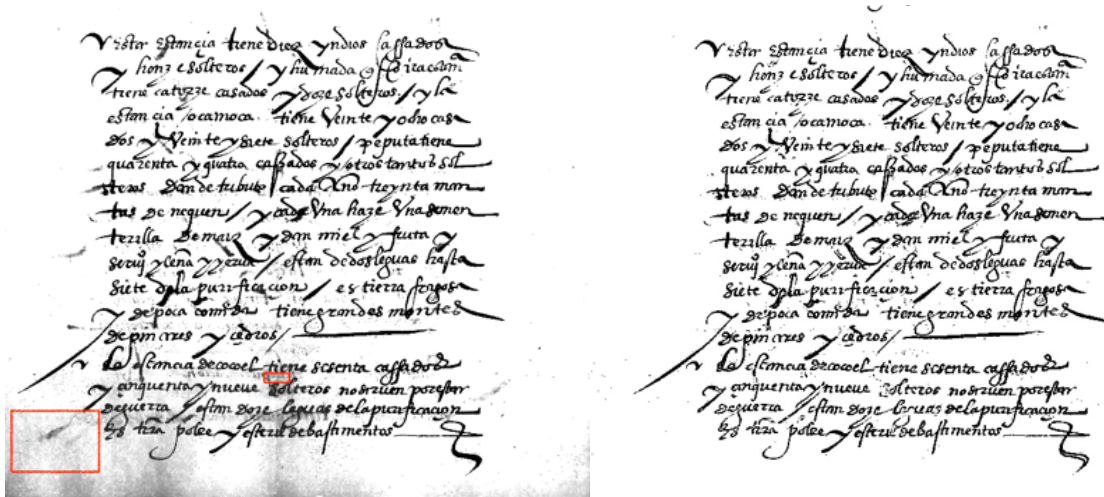 Esta estançia tiene diez yndios cassados
y honze solteros / y humada
tiene catorze casados y doze solteros / y la
estançia ocamoca tiene Veinte y ocho cas
dos y Veinte y siete solteros / peputa tiene
quarenta y quatro cassados y otros tantos sol
teros dan de tributo cada Año treynta man
tas de nequen / y cada Vna haze Vna semen
terilla de maiz y dan miel y fruta y
seruiº y leña y yerua / estan de dos leguas hasta
siete de la purificaçion / es tierra fragosa
y de poca comida tiene grandes montes
de pinares y çedros /
La estancia de cocoel tiene sesenta cassados
y çinquenta y nueue solteros no siruen por estar
de guerra / estan doze leguas de la purificaçion
es trrã pobre y esteril de bastimentos
Esta estançia tiene diez yndios cassados
y honze solteros / y humada
tiene catorze casados y doze solteros / y la
estançia ocamoca tiene Veinte y ocho cas
dos y Veinte y siete solteros / peputa tiene
quarenta y quatro cassados y otros tantos sol
teros dan de tributo cada Año treynta man
tas de nequen / y cada Vna haze Vna semen
terilla de maiz y dan miel y fruta y
seruiº y leña y yerua / estan de dos leguas hasta
siete de la purificaçion / es tierra fragosa
y de poca comida tiene grandes montes
de pinares y çedros /
La estancia de cocoel tiene sesenta cassados
y çinquenta y nueue solteros no siruen por estar
de guerra / estan doze leguas de la purificaçion
es trrã pobre y esteril de bastimentos